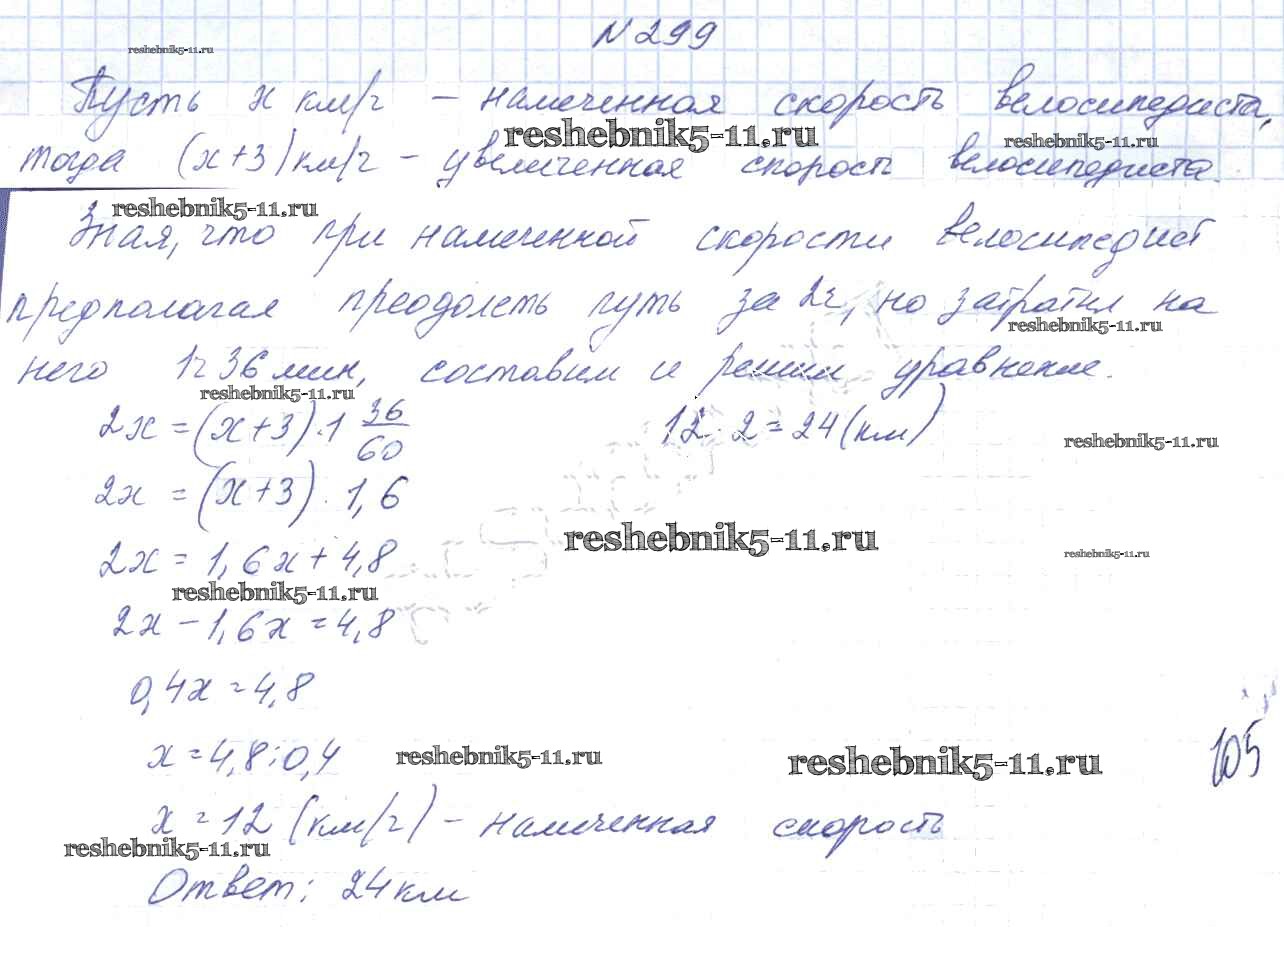 N 299
reshebnik5-11.ru
Пусть x км/ч – намеченная скорость велосипедиста,
reshebnik5-11.ru
reshebnik5-11.ru
тогда (x+3) км/ч – увеличенная скорость велосипедиста.
reshebnik5-11.ru
Зная, что при намеченной скорости велосипедист
предполагая преодолеть путь за 2ч, но затратил на
reshebnik5-11.ru
него 1ч 36 мин, составим и решим уравнение.
reshebnik5-11.ru
2x = (x+3) · 1 36/60
12 · 2 = 24 (км)
reshebnik5-11.ru
2x = (x+3) · 1,6
reshebnik5-11.ru
2x = 1,6x + 4,8
reshebnik5-11.ru
reshebnik5-11.ru
2x – 1,6x = 4,8
0,4x = 4,8
x = 4,8 : 0,4
reshebnik5-11.ru
reshebnik5-11.ru
105
x = 12 (км/ч) – намеченная скорость
reshebnik5-11.ru
Ответ: 24 км